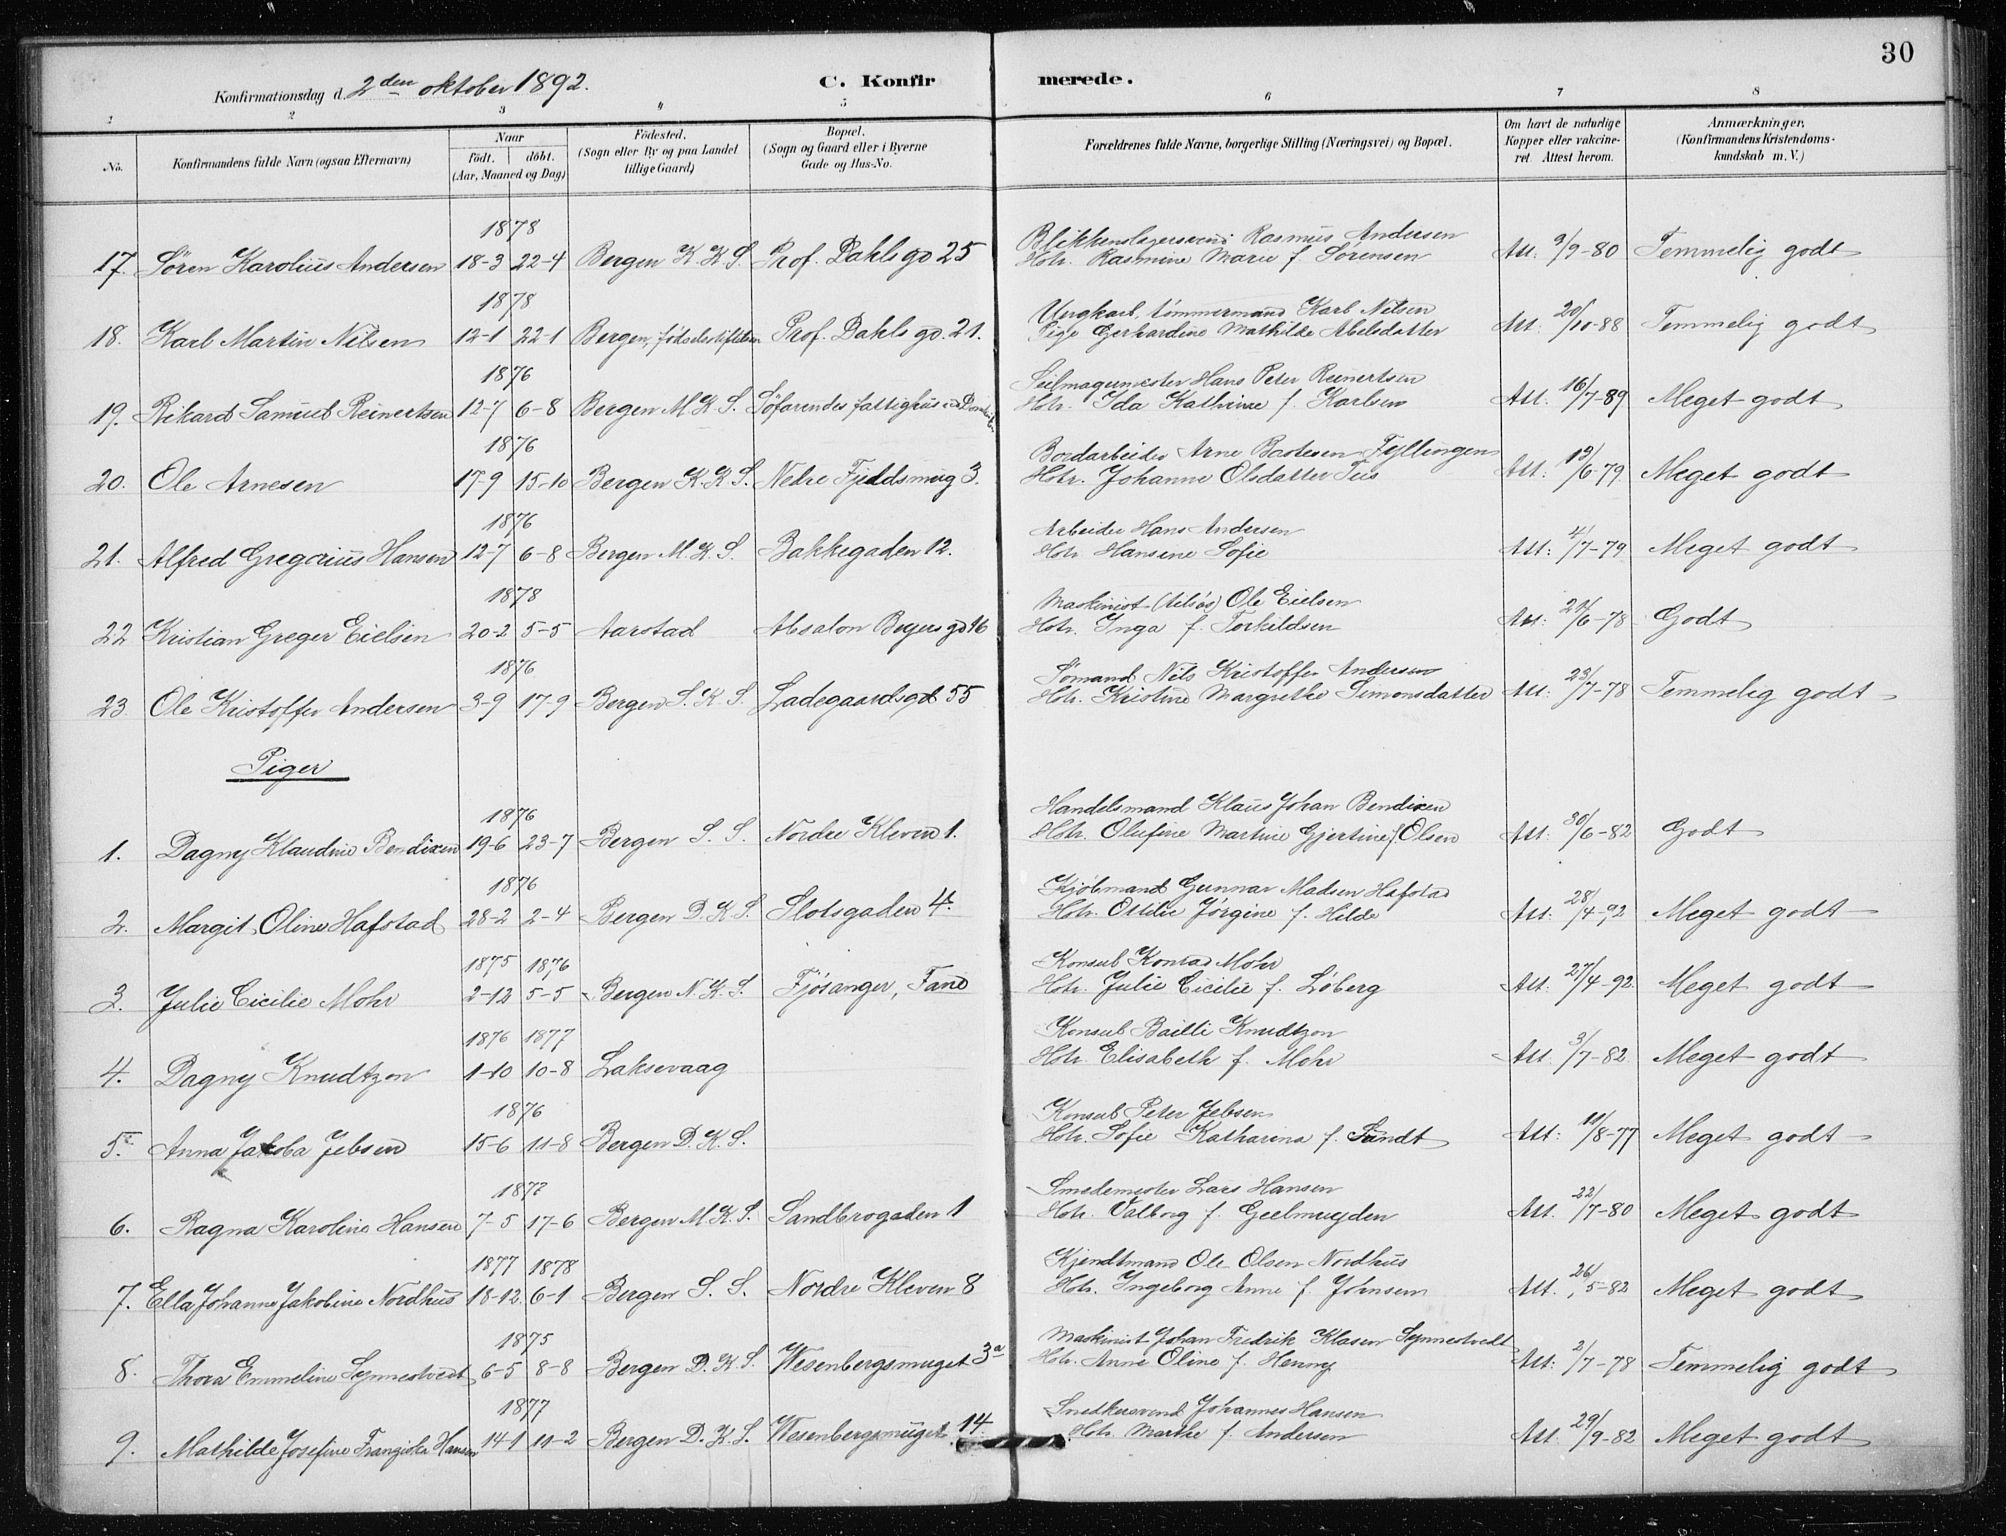 30
Konfirmationsdag d. 2den oktober 1892.
C. Konfirmerede.
1 2 3 4 5 6 7 8
No.
Konfirmandens fulde Navn (ogsaa Efternavn)
Naar
födt. döbt.
(Aar, Maaned og Dag)
Födested.
(Sogn eller By og paa Landet
tillige Gaard)
Bopæl.
(Sogn og Gaard eller i Byerne
Gade og Hus-No.
Forældrenes fulde Navne, borgerlige Stilling (Næringsvei) og Bopæl.
Om havt de naturlige
Kopper eller vakcine-
ret Attest herom.
Anmærkninger,
(Konfirmandens Kristendoms-
kundskab m. V.)
1878 Blikkenslagersvend Rasmus Andersen
17. Søren Karolius Andersen 18-3 22-4 Bergen K. K. S. Prof. Dahls gd 25 Hstr. Rasmine Marie f. Sørensen Att. 9/9-80 Temmelig godt
1878 Ungkarl, tømmermand Karl Nilsen
18. Karl Martin Nilsen 12-1 22-1 Bergen, fødselsstiftelsen Prof. Dahls gd. 21. Pige Gerhardine Mathilde Abelsdatter Att. 20/10-88 Temmelig godt
1876 Seilmagermester Hans Peter Reinertsen
19. Rikard Samuel Reinertsen 12-7 6-8 Bergen M. K. S. Søfarendes fattighus Hstr. Ida Kathrine f. Karlsen Att. 16/7-89 Meget godt
1876 Bordarbeider Arne Fyllingen
20. Ole Arnesen 17-9 15-10 Bergen K. K. S. Nedre Fjeldsmug 3. Hstr. Johanne Olsdatter Att. 13/6-79 Meget godt
1876 Arbeider Hans Andersen
21. Alfred Gregorius Hansen 12-7 6-8 Bergen M. K. S. Bakkegaden 12. Hstr. Hansine Sofie Att: 4/7-79 Meget godt
1878 Maskinist Ole Eielsen
22 Kristian Greger Eielsen 20-2 5-5 Aarstad Absalon Beyers gd 16 Hstr. Inga f. Torkildsen Att: 24/6-78 Godt
1876 Sømand Nils Kristoffer Andersen
23 Ole Kristoffer Andersen 3-9 17-9 Bergen S. K. S. Ladegaardsgd 55 Hstr. Kristine Margrethe Simonsdatter Att: 23/7-78 Temmelig godt
Piger
1876 Handelsmand Klaus Johan Bendixen
1. Dagny Klaudine Bendixen 19-6 23-7 Bergen S. S. Nordre Kleven 1. Hstr. Olufine Martine Gjertine f. Olsen Att: 30/6-82 Godt
1876 Kjøbmand Gunnar Madsen Hafstad
2. Margit Oline Hafstad 28-2 2-4 Bergen D. K. S. Slotsgaden 4. Hstr. Ottilie Jørgine f. Hilde Att: 28/4-92 Meget godt
1875 1876 Konsul Konrad Mohr
3. Julie Cicilie Mohr 2-12 5-5 Bergen N. K. S. Fjøsanger, Fane Hstr. Julie Cicilie f. Løberg Att: 27/4-92 Meget godt
1876 1877 Konsul Bailli Knudtzon
4. Dagny Knudtzon 1-10 10-8 Laksevaag Hstr. Elisabeth f. Mohr Att. 3/7-82 Meget godt
1876 Konsul Peter Jebsen
5. Anna Jakoba Jebsen 15-6 11-8 Bergen D. K. S. Hstr. Sofie Katharina f. Sundt Att: 11/8-77 Meget godt
1877 Smedemester Lars Hansen
6. Ragna Karoline Hansen 7-5 17-6 Bergen M. K. S. Sandbrogaden 1 Hstr. Valborg f. Geelmuyden Att. 22/7-80 Meget godt
1877 1878 Kjendtmand Ole Olsen Nordhus
7. Ella Johanne Jakobine Nordhus 18-12 6-1 Bergen S. S. Nordre Kleven 8 Hstr. Ingeborg Anne f. Johnsen Att. 26/5-82 Meget godt
1875 Maskinist Johan Fredrik Klasen Synnestvedt
8. Thora Emmeline Synnestvedt 6-5 8-8 Bergen D. K. S. Wesenbergsmuget 3a Hstr. Anne Oline f. Henny Att: 2/7-78 Temmelig godt
1877 Snedkersvend Johannes Hansen
9. Mathilde Josefine Frangiska Hansen 14-1 11-2 Bergen D. K. S. Wesenbergsmuget 14. Hstr. Marthe f. Andersen Att: 29/9-82 Meget godt